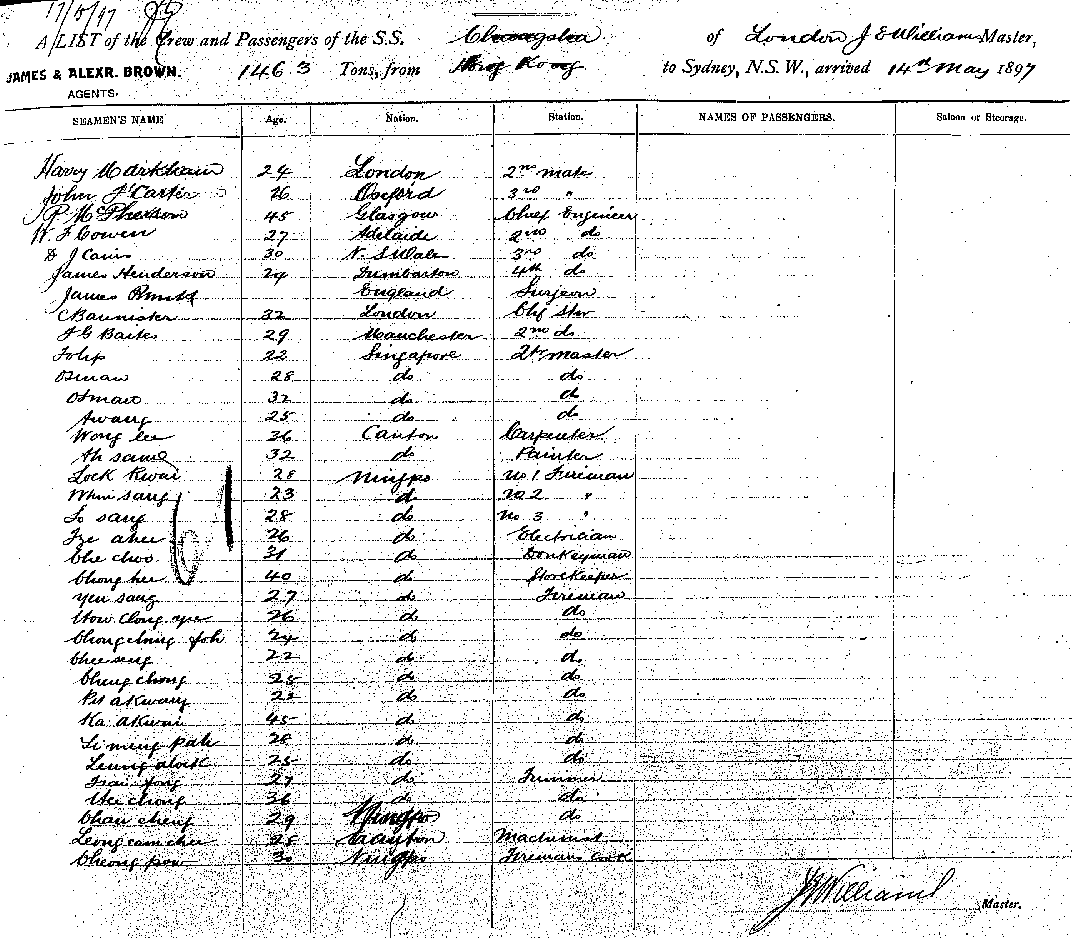 17/5/97
A LIST of the Crew and Passengers of the S.S. Changsha of London J E Williams Master,
JAMES & ALEXR. BROWN. 1463 Tons, from Hong Kong to Sydney, N.S.W., arrived 14th May 1897
AGENTS.
SEAMEN'S NAME Age. Nation. Station. NAMES OF PASSENGERS. Saloon or Steerage.
Harry Markham 24 London 2nd mate
John F Carter 26 Oxford 3rd "
R McPherson 45 Glasgow Chief Engineer
W. F Cowen 27 Adelaide 2nd do
D J Cairns 30 N. S Wales 3rd do
James Henderson 24 Dumbarton 4th do
James England Surgeon
C Bannister 32 London Chf Stw
F G Baites 29 Manchester 2nd do
22 Singapore Qr master
Osman 28 do do
Osman 32 do do
Awang 25 do do
Wong lee 36 Canton Carpenter
Ah sam 32 do Painter
Lock Kwai 28 Ningpo No 1 Fireman
Whin sang 23 d No 2 "
So sang 28 do No 3 "
26 do Electrician
Che choo 31 do Donkeyman
Chong hee 40 do Storekeeper
Yen sang 27 do Fireman
26 do do
Chong ching foh 24 do do
Chee seng 22 do do
Cheng chong 25 do do
Pit akwang 23 do do
Ka akwai 45 do do
Li ming pah 28 do do
Leung aloik 25 do do
27 do Trimmer
Wee chong 36 do do
Chan cheng 29 Ningpo do
Leong cam chee 28 Canton Machinist
Cheong pow 30 Ningpo Firemans cook
J Williams Master.